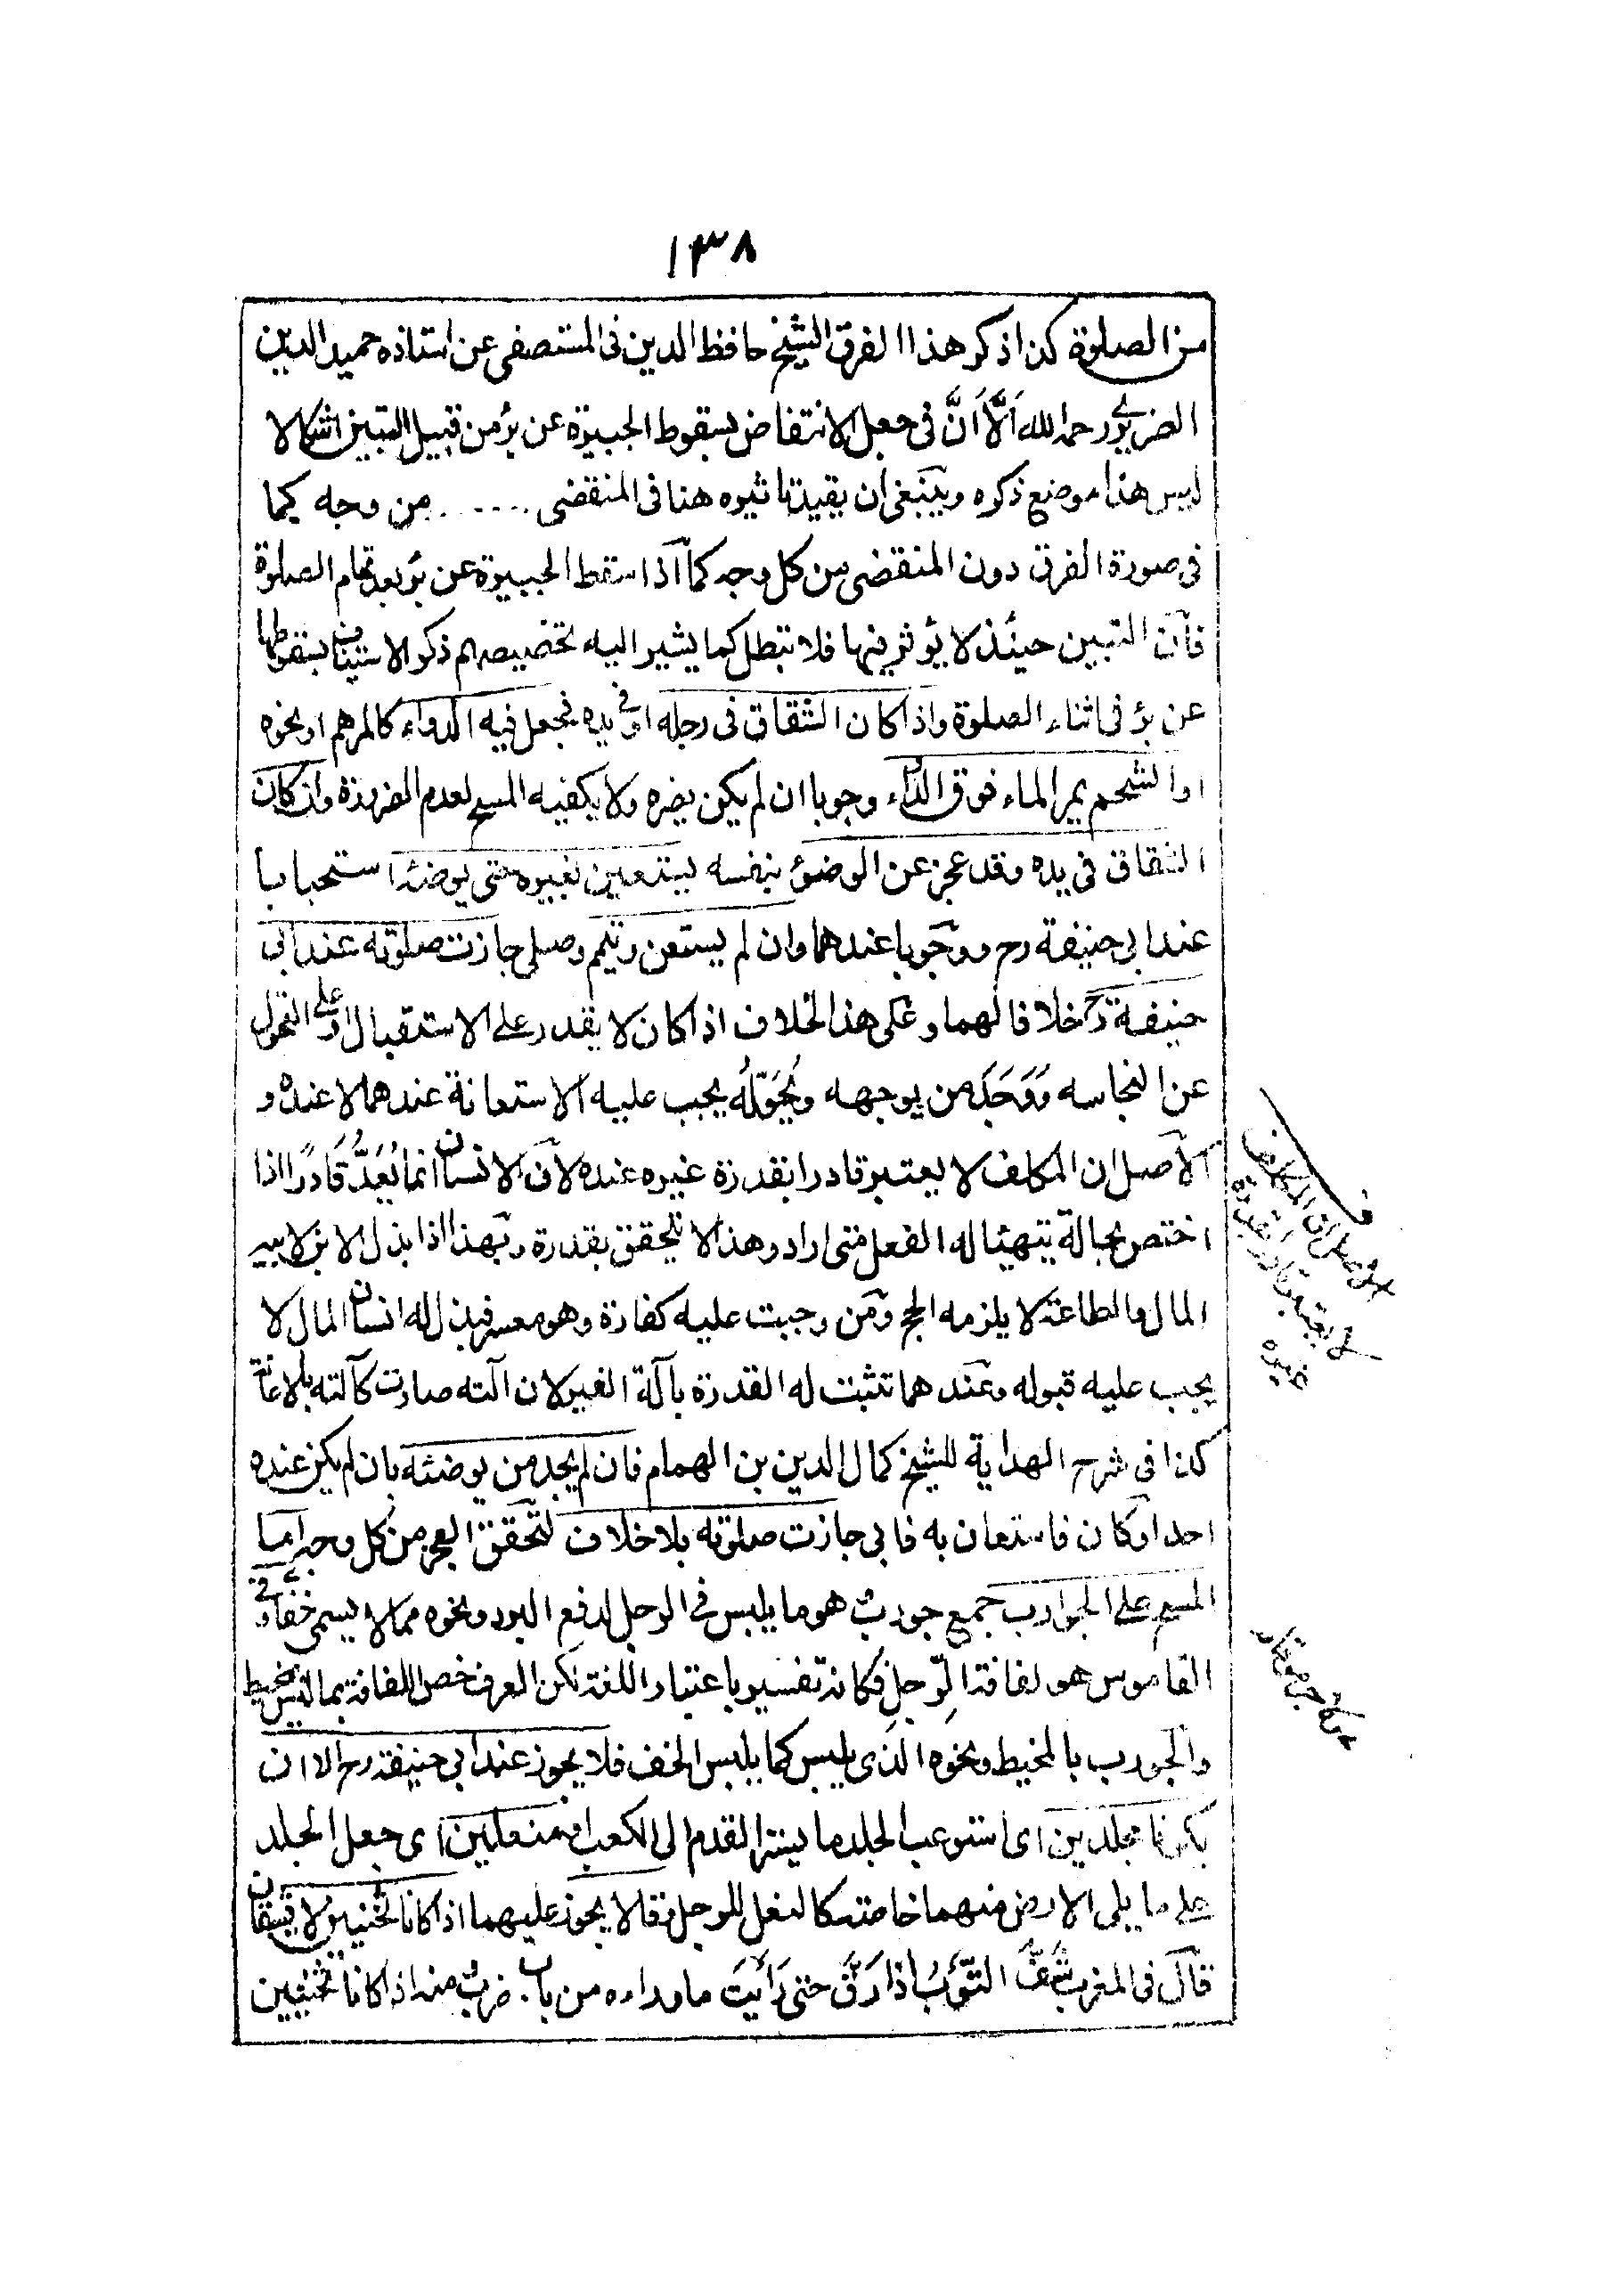 ١٣٨
من الصلوة كذا ذكر هذا الفرق الشيخ حافظ الدين فى المستصفى عن استاذه حميد الدين
الضريرى رحمه الله الّا انّ فى جعل الانتقاض بسقوط الجبيرة عن برؤ من قبيل التبين اشكالا
ليس هذا موضع ذكره وينبغى ان يقيد تاثيره هنا فى المنقضى ...... من وجه كما
فى صورة الفرق دون المنقضى من كل وجه كما اذا سقط الجبيرة عن برؤ بعد تمام الصلوة
فان التبين حينئذ لا يؤثر فيها فلا تبطل كما يشير اليه تخصيصهم ذكر الاستيناف بسقوطها
عن برؤ فى اثناء الصلوة واذا كان الشقاق فى رجله او فى يده فجعل فيه الدواء كالمرهم او نحوه
او الشحم يمر الماء فوق الدواء وجوبا ان لم يكن يضره ولا يكفيه المسح لعدم الضرورة وان كان
الشقاق فى يده وقد عجز عن الوضوء بنفسه يستعين بغيره حتى يوضئه استحبابا
عند ابى حنيفة رح ووجوبا عندهما وان لم يستعن وتيمم وصلى جازت صلوته عند ابى
حنيفة رح خلافا لهما وعلى هذا الخلاف اذا كان لا يقدر على الاستقبال او على التحول
عن النجاسه وَوَجَدَ من يوجهه ويُحَوِّلُه يجب عليه الاستعانة عندهما لا عنده و
الاصل ان المكلف لا يعتبر قادرا بقدرة غيره عنده لان الانسان انما يُعَدُّ قَادرًا اذا
اختص بحالة يتهيئا له الفعل متى اراد وهذا لا يتحقق بقدرة وبهذا اذا بذل الابن لابيه
المال والطاعة لا يلزمه الحج ومن وجبت عليه كفارة وهو معسر فبذل له انسان المال لا
يجب عليه قبوله وعندهما تثبت له القدرة بآلة الغير لان آلته صارت كآلته بالاعانة
كذا فى شرح الهداية للشيخ كمال الدين بن الهمام فان لم يجد من يوضئه بان لم يكن عنده
احد او كان فاستعان به فابى جازت صلوته بلا خلاف لتحقق العجز من كل وجه اما
المسح على الجوارب جمع جورب هو ما يلبس فى الرجل لدفع البرد ونحوه مما لا يسمى خفا وفى
القاموس هو لفافة الرِّجلِ فكانه تفسير باعتبار اللغة لكن العرف خص اللفافة بما ليس بمخيط
والجورب بالمخيط ونحوه الذى يلبس كما يلبس الخف فلا يجوز عند ابى حنيفة رح الا ان
يكونا مجلدين اى استوعب الجلد ما يستر القدم الى الكعب او منعلين اى جعل الجلد
على ما يلى الارض منهما خاصة كالنعل للرجل وقالا يجوز عليهما اذا كانا ثخينين لا يشفان
قال فى المغرب شَفَّ الثَّوْبُ اذا رَقَّ حتى رَاَيْتَ ماوراءه من باب ضرب منه اذا كانا ثخينين
الاصل ان المكلف
لا يعتبر قادرا بقدرة
غيره